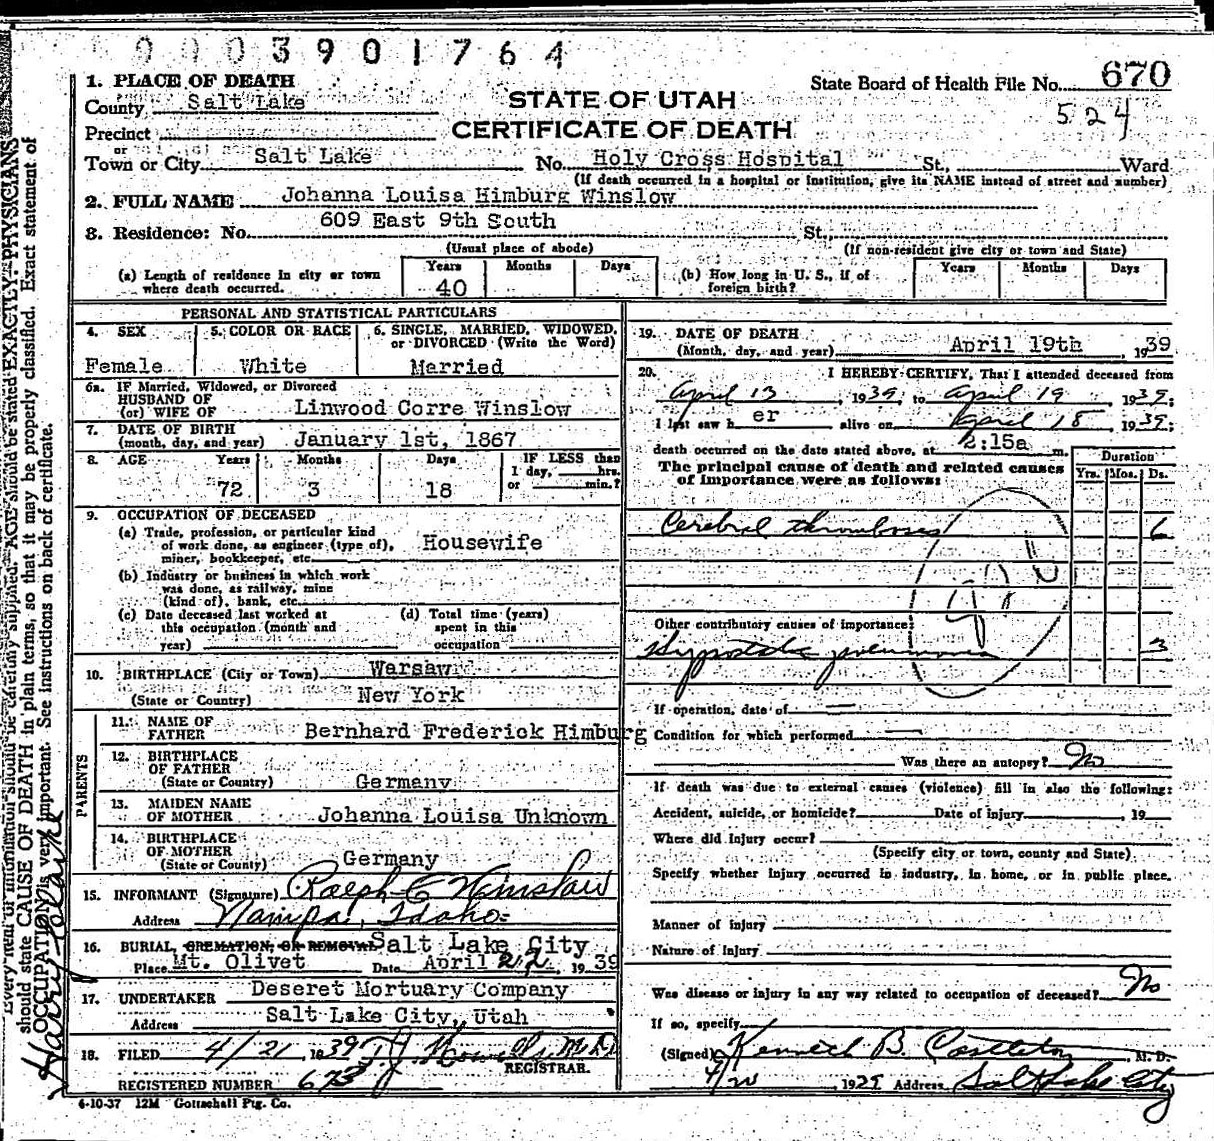 0003901764
1. PLACE OF DEATH
State Board of Health File No. 670
County Salt Lake
STATE OF UTAH
524
Precinct
CERTIFICATE OF DEATH
or
Town or City Salt Lake No. Holy Cross Hospital St., Ward
(If death occurred in a hospital or institution, give its NAME instead of street and number)
2. FULL NAME Johanna Louisa Himburg Winslow
3. Residence: No. 609 East 9th South St.,
(Usual place of abode) (If non-resident give city or town and State)
(a) Length of residence in city or town where death occurred. Years 40 Months Days
(b) How long in U. S., if of foreign birth? Years Months Days
PERSONAL AND STATISTICAL PARTICULARS
4. SEX 5. COLOR OR RACE 6. SINGLE, MARRIED, WIDOWED, or DIVORCED (Write the Word)
Female White Married
6a. IF Married, Widowed, or Divorced
HUSBAND OF
(or) WIFE OF Linwood Corre Winslow
7. DATE OF BIRTH
(month, day, and year) January 1st, 1867
8. AGE Years Months Days IF LESS than
1 day, hrs.
72 3 18 or min.?
9. OCCUPATION OF DECEASED
(a) Trade, profession, or particular kind
of work done, as engineer (type of), Housewife
miner, bookkeeper, etc.
(b) Industry or business in which work
was done, as railway, mine
(kind of), bank, etc.
(c) Date deceased last worked at this occupation (month and year)
(d) Total time (years) spent in this occupation
10. BIRTHPLACE (City or Town) Warsaw
(State or Country) New York
PARENTS
11. NAME OF
FATHER Bernhard Frederick Himburg
12. BIRTHPLACE
OF FATHER
(State or Country) Germany
13. MAIDEN NAME
OF MOTHER Johanna Louisa Unknown
14. BIRTHPLACE
OF MOTHER
(State or County) Germany
15. INFORMANT (Signature) Ralph C Winslow
Address Nampa, Idaho
16. BURIAL, CREMATION, OR REMOVAL Salt Lake City
Place Mt. Olivet Date April 22, 1939
17. UNDERTAKER Deseret Mortuary Company
Address Salt Lake City, Utah
18. FILED 4/21 1939 M.D.
REGISTRAR.
REGISTERED NUMBER 673
4-10-37 12M Gottschall Ptg. Co.
19. DATE OF DEATH
(Month, day, and year) April 19th, 1939
20. I HEREBY CERTIFY, That I attended deceased from
April 13, 1939, to April 19, 1939;
I last saw her alive on April 18, 1939;
death occurred on the date stated above, at 2:15a m.
The principal cause of death and related causes of importance were as follows:
Duration
Yrs. Mos. Ds.
Cerebral thrombosis 6
Other contributory causes of importance:
Hypostatic pneumonia 3
If operation, date of
Condition for which performed
Was there an autopsy? No
If death was due to external causes (violence) fill in also the following:
Accident, suicide, or homicide? Date of injury , 19
Where did injury occur?
(Specify city or town, county and State)
Specify whether injury occurred in industry, in home, or in public place.
Manner of injury
Nature of injury
Was disease or injury in any way related to occupation of deceased? No
If so, specify
(Signed) Kenneth B. Castleton M. D.
4/20, 1929 Address Salt Lake City
should state CAUSE OF DEATH in plain terms, so that it may be properly classified. Exact statement of
OCCUPATION is very important. See instructions on back of certificate.